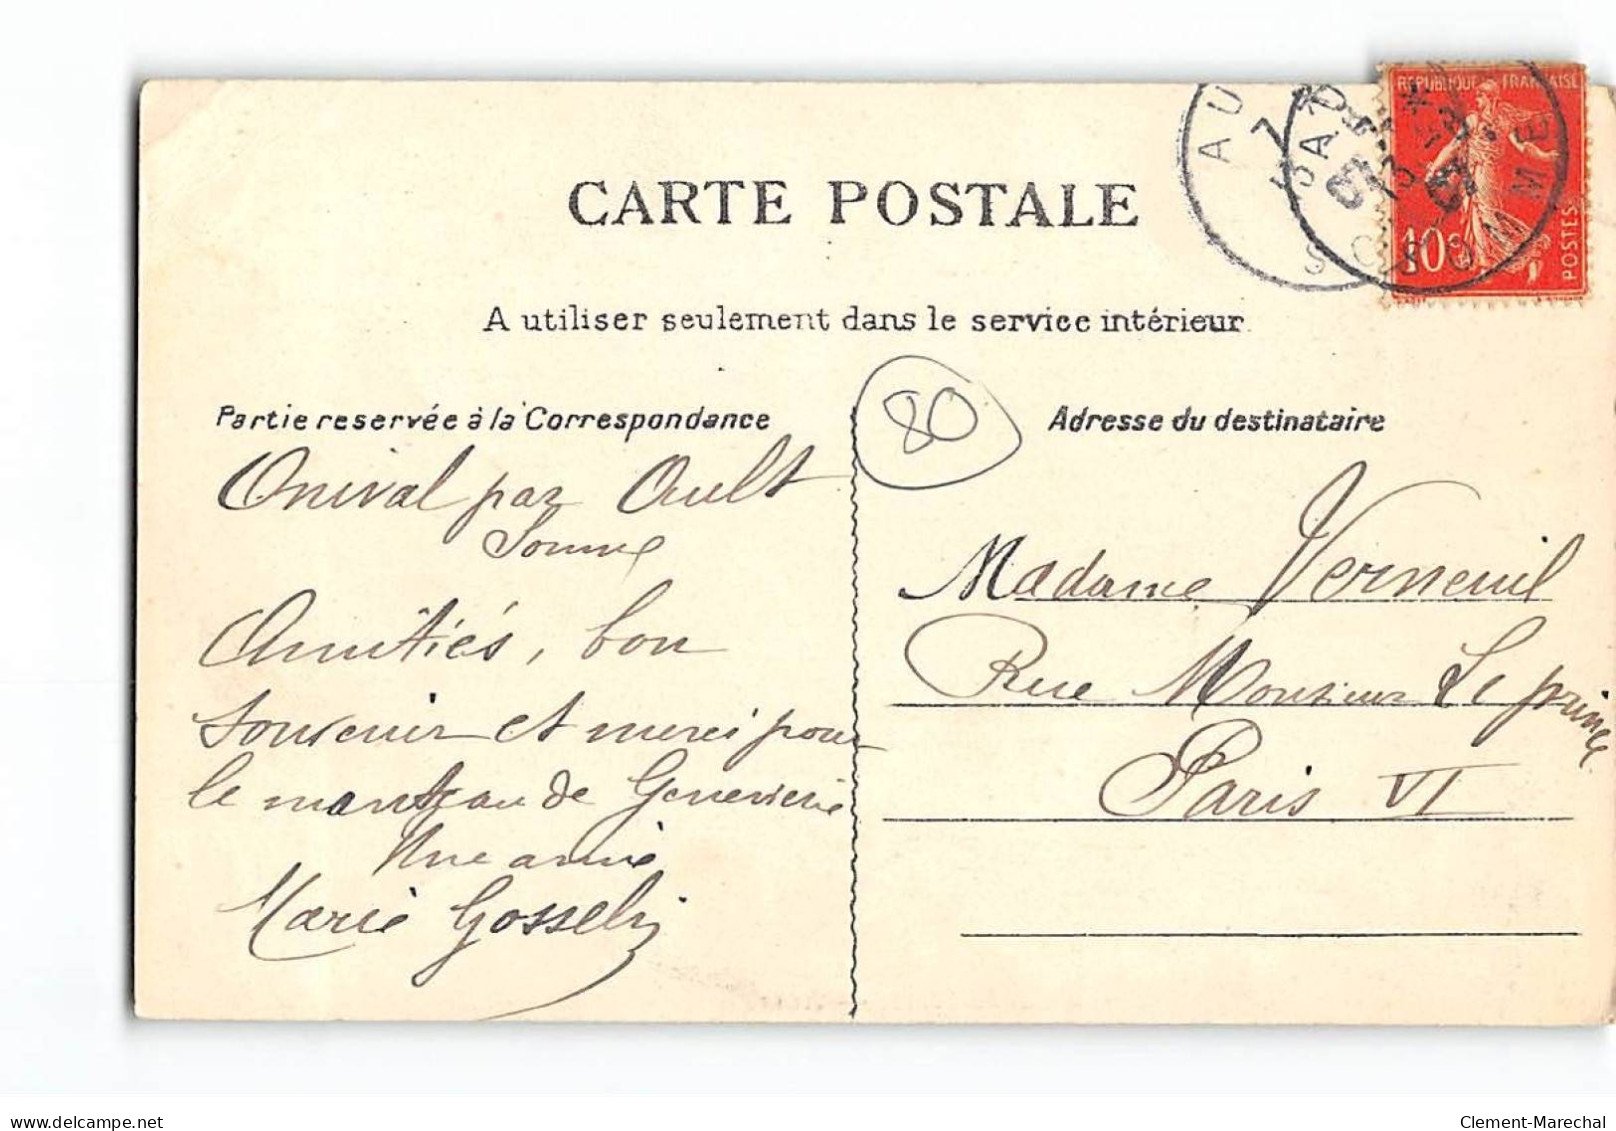 CARTE POSTALE
A utiliser seulement dans le service intérieur
Partie reservée à la Correspondance
Onival par Ault
Somme
Amitiés, bon
souvenir et merci pour
le manteau de Geneviève
Une amie
Marie Gosselin
80
Adresse du destinataire
Madame Verneuil
Rue Monsieur Le prince
Paris VI
REPUBLIQUE FRANÇAISE
10c
POSTES
AU
SOMME
delcampe.net
Clement-Marechal